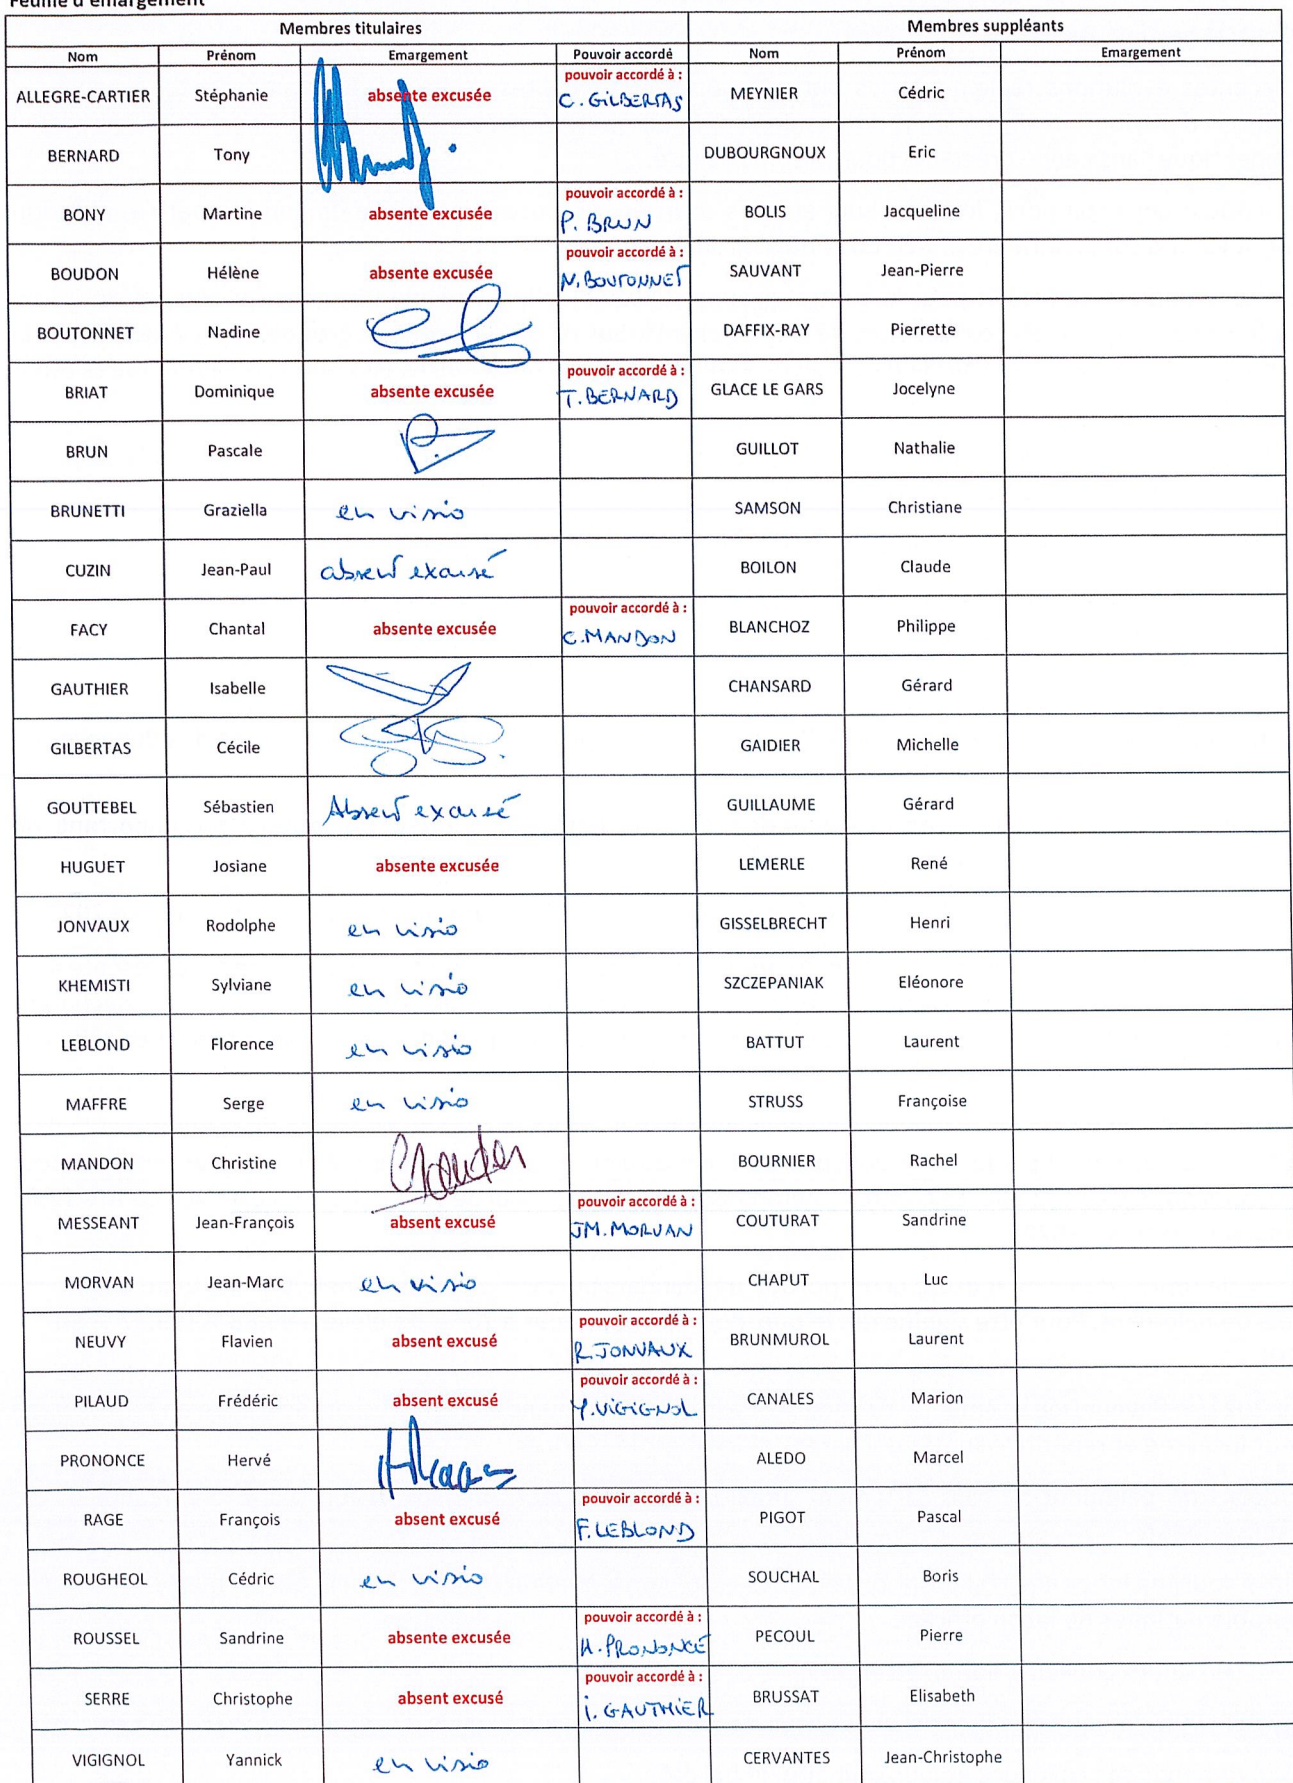 Feuille d'émargement
Membres titulaires Membres suppléants
Nom Prénom Emargement Pouvoir accordé Nom Prénom Emargement
ALLEGRE-CARTIER Stéphanie absente excusée pouvoir accordé à : C. GILBERTAS MEYNIER Cédric
BERNARD Tony DUBOURGNOUX Eric
BONY Martine absente excusée pouvoir accordé à : P. BRUN BOLIS Jacqueline
BOUDON Hélène absente excusée pouvoir accordé à : N. BOUTONNET SAUVANT Jean-Pierre
BOUTONNET Nadine DAFFIX-RAY Pierrette
BRIAT Dominique absente excusée pouvoir accordé à : T. BERNARD GLACE LE GARS Jocelyne
BRUN Pascale GUILLOT Nathalie
BRUNETTI Graziella en visio SAMSON Christiane
CUZIN Jean-Paul absent excusé BOILON Claude
FACY Chantal absente excusée pouvoir accordé à : C. MANDON BLANCHOZ Philippe
GAUTHIER Isabelle CHANSARD Gérard
GILBERTAS Cécile GAIDIER Michelle
GOUTTEBEL Sébastien Absent excusé GUILLAUME Gérard
HUGUET Josiane absente excusée LEMERLE René
JONVAUX Rodolphe en visio GISSELBRECHT Henri
KHEMISTI Sylviane en visio SZCZEPANIAK Eléonore
LEBLOND Florence en visio BATTUT Laurent
MAFFRE Serge en visio STRUSS Françoise
MANDON Christine BOURNIER Rachel
MESSEANT Jean-François absent excusé pouvoir accordé à : JM. MORVAN COUTURAT Sandrine
MORVAN Jean-Marc en visio CHAPUT Luc
NEUVY Flavien absent excusé pouvoir accordé à : R. JONVAUX BRUNMUROL Laurent
PILAUD Frédéric absent excusé pouvoir accordé à : Y. VIGIGNOL CANALES Marion
PRONONCE Hervé ALEDO Marcel
RAGE François absent excusé pouvoir accordé à : F. LEBLOND PIGOT Pascal
ROUGHEOL Cédric en visio SOUCHAL Boris
ROUSSEL Sandrine absente excusée pouvoir accordé à : H. PRONONCE PECOUL Pierre
SERRE Christophe absent excusé pouvoir accordé à : i. GAUTHIER BRUSSAT Elisabeth
VIGIGNOL Yannick en visio CERVANTES Jean-Christophe